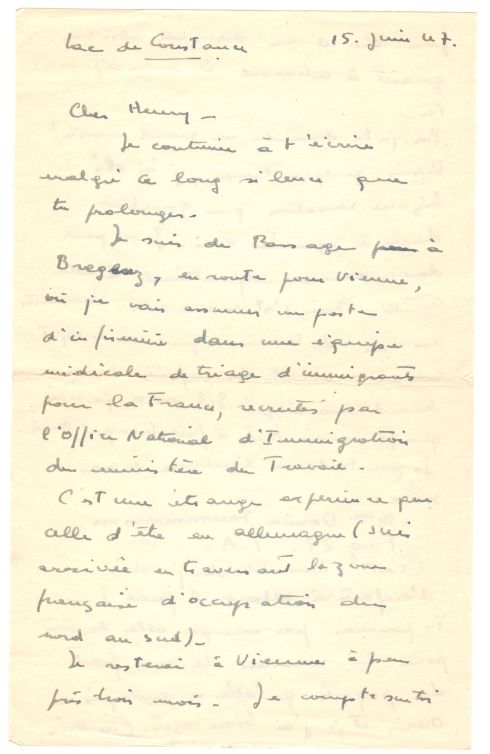 Lac de Constance 15. Juin 47.
Cher Henry -
Je continue à t'écrire
malgré ce long silence que
tu prolonges -
Je suis de Passage à
Bregenz, en route pour Vienne,
où je vais assumer un poste
d'infirmière dans une équipe
médicale de triage d'immigrants
pour la France, recrutés par
l'Office National d'Immigration
du ministère du Travail -
C'est une étrange expérience que
celle d'être en allemagne (suis
arrivée en traversant la zone
française d'occupation du
nord au sud) -
Je resterai à Vienne à peu
près trois mois - Je compte